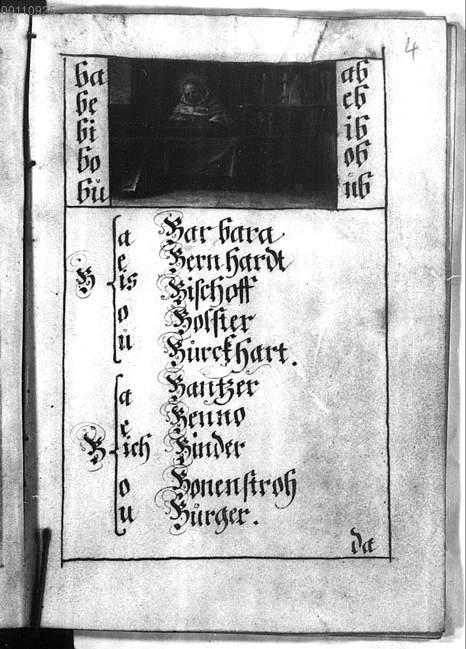 0011092
4
ba
be
bi
bo
bů
ab
eb
ib
ob
ůb
B
a Barbara
e Bernhardt
is Bischoff
o Bolster
ů Bůrckhart.
B
a Bantzer
e Benno
ich Binder
o Bonenstroh
u Bůrger.
da